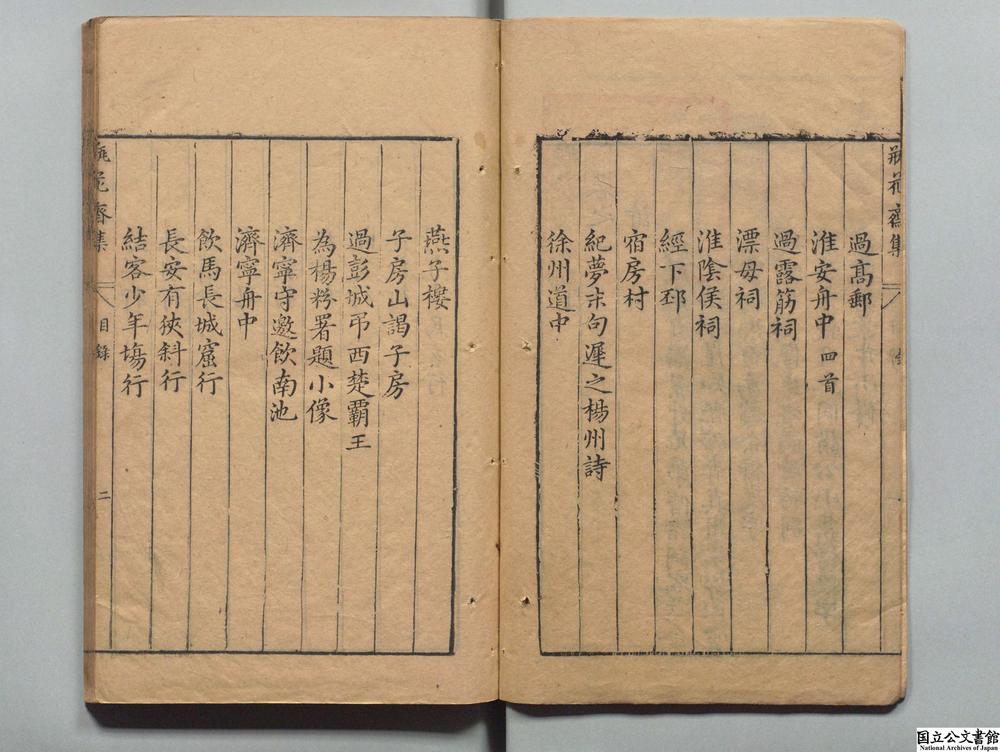 過髙郵
淮安舟中四首
過露筋祠
漂母祠
淮陰侯祠
經下邳
宿房村
紀夢末句遲之楊州詩
徐州道中
燕子樓
子房山謁子房
過彭城弔西楚霸王
為楊稃署題小像
濟寧守邀飲南池
濟寧舟中
飲馬長城窟行
長安有狹斜行
結客少年塲行
瓶花齋集
目錄
二
国立公文書館
National Archives of Japan